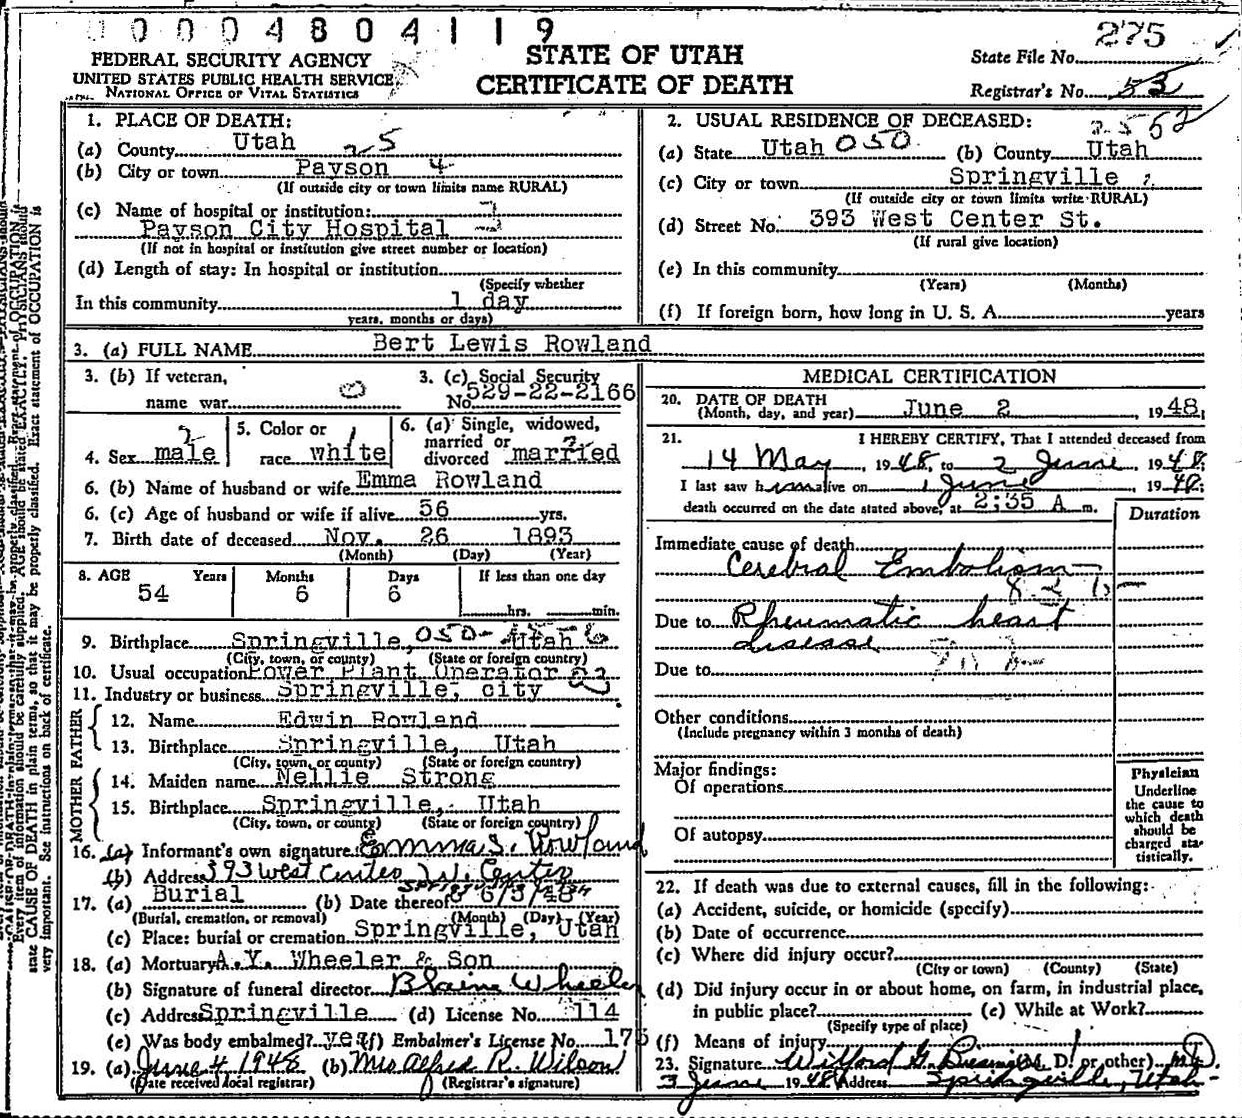 0 0 0 0 4 8 0 4 1 1 9
FEDERAL SECURITY AGENCY
UNITED STATES PUBLIC HEALTH SERVICE
NATIONAL OFFICE OF VITAL STATISTICS
STATE OF UTAH
CERTIFICATE OF DEATH
State File No. 275
Registrar's No. 53
1. PLACE OF DEATH:
(a) County Utah 25
(b) City or town Payson 4
(If outside city or town limits name RURAL)
(c) Name of hospital or institution:
Payson City Hospital
(If not in hospital or institution give street number or location)
(d) Length of stay: In hospital or institution
(Specify whether
In this community 1 day
years, months or days)
2. USUAL RESIDENCE OF DECEASED:
(a) State Utah 050 (b) County Utah
(c) City or town Springville
(If outside city or town limits write RURAL)
(d) Street No. 393 West Center St.
(If rural give location)
(e) In this community
(Years) (Months)
(f) If foreign born, how long in U. S. A. years
3. (a) FULL NAME Bert Lewis Rowland
3. (b) If veteran,
name war 0
3. (c) Social Security
No. 529-22-2166
4. Sex male
5. Color or
race white
6. (a) Single, widowed,
married or
divorced married
6. (b) Name of husband or wife Emma Rowland
6. (c) Age of husband or wife if alive 56 yrs.
7. Birth date of deceased Nov. 26 1893
(Month) (Day) (Year)
8. AGE Years Months Days If less than one day
54 6 6 hrs. min.
9. Birthplace Springville, 050- Utah
(City, town, or county) (State or foreign country)
10. Usual occupation Power Plant Operator
11. Industry or business Springville, city
FATHER
12. Name Edwin Rowland
13. Birthplace Springville, Utah
(City, town, or county) (State or foreign country)
MOTHER
14. Maiden name Nellie Strong
15. Birthplace Springville, Utah
(City, town, or county) (State or foreign country)
16. (a) Informant's own signature Emma S. Rowland
(b) Address 393 West Center W. Center
17. (a) Burial (b) Date thereof 6/3/48
(Burial, cremation, or removal) (Month) (Day) (Year)
(c) Place: burial or cremation Springville, Utah
18. (a) Mortuary A. Y. Wheeler & Son
(b) Signature of funeral director Blaine Wheeler
(c) Address Springville (d) License No. 114
(e) Was body embalmed? yes (f) Embalmer's License No. 175
19. (a) June 4 1948 (b) Mrs Alfred R. Wilson
(Date received local registrar) (Registrar's signature)
MEDICAL CERTIFICATION
20. DATE OF DEATH
(Month, day, and year) June 2, 1948
21. I HEREBY CERTIFY, That I attended deceased from
14 May, 1948, to 2 June, 1948;
I last saw him alive on 1 June 1948;
death occurred on the date stated above, at 2:35 A m.
Duration
Immediate cause of death
Cerebral Embolism
Due to Rheumatic heart
disease
Due to
Other conditions
(Include pregnancy within 3 months of death)
Major findings:
Of operations
Of autopsy
Physician
Underline
the cause to
which death
should be
charged sta-
tistically.
22. If death was due to external causes, fill in the following:
(a) Accident, suicide, or homicide (specify)
(b) Date of occurrence
(c) Where did injury occur?
(City or town) (County) (State)
(d) Did injury occur in or about home, on farm, in industrial place,
in public place? (e) While at Work?
(Specify type of place)
(f) Means of injury
23. Signature Wilford G. (M. D. or other)
3 June 1948 Address Springville, Utah
state CAUSE OF DEATH in plain terms, so that it may be properly classified. Exact statement of OCCUPATION is
very important. See instructions on back of certificate.